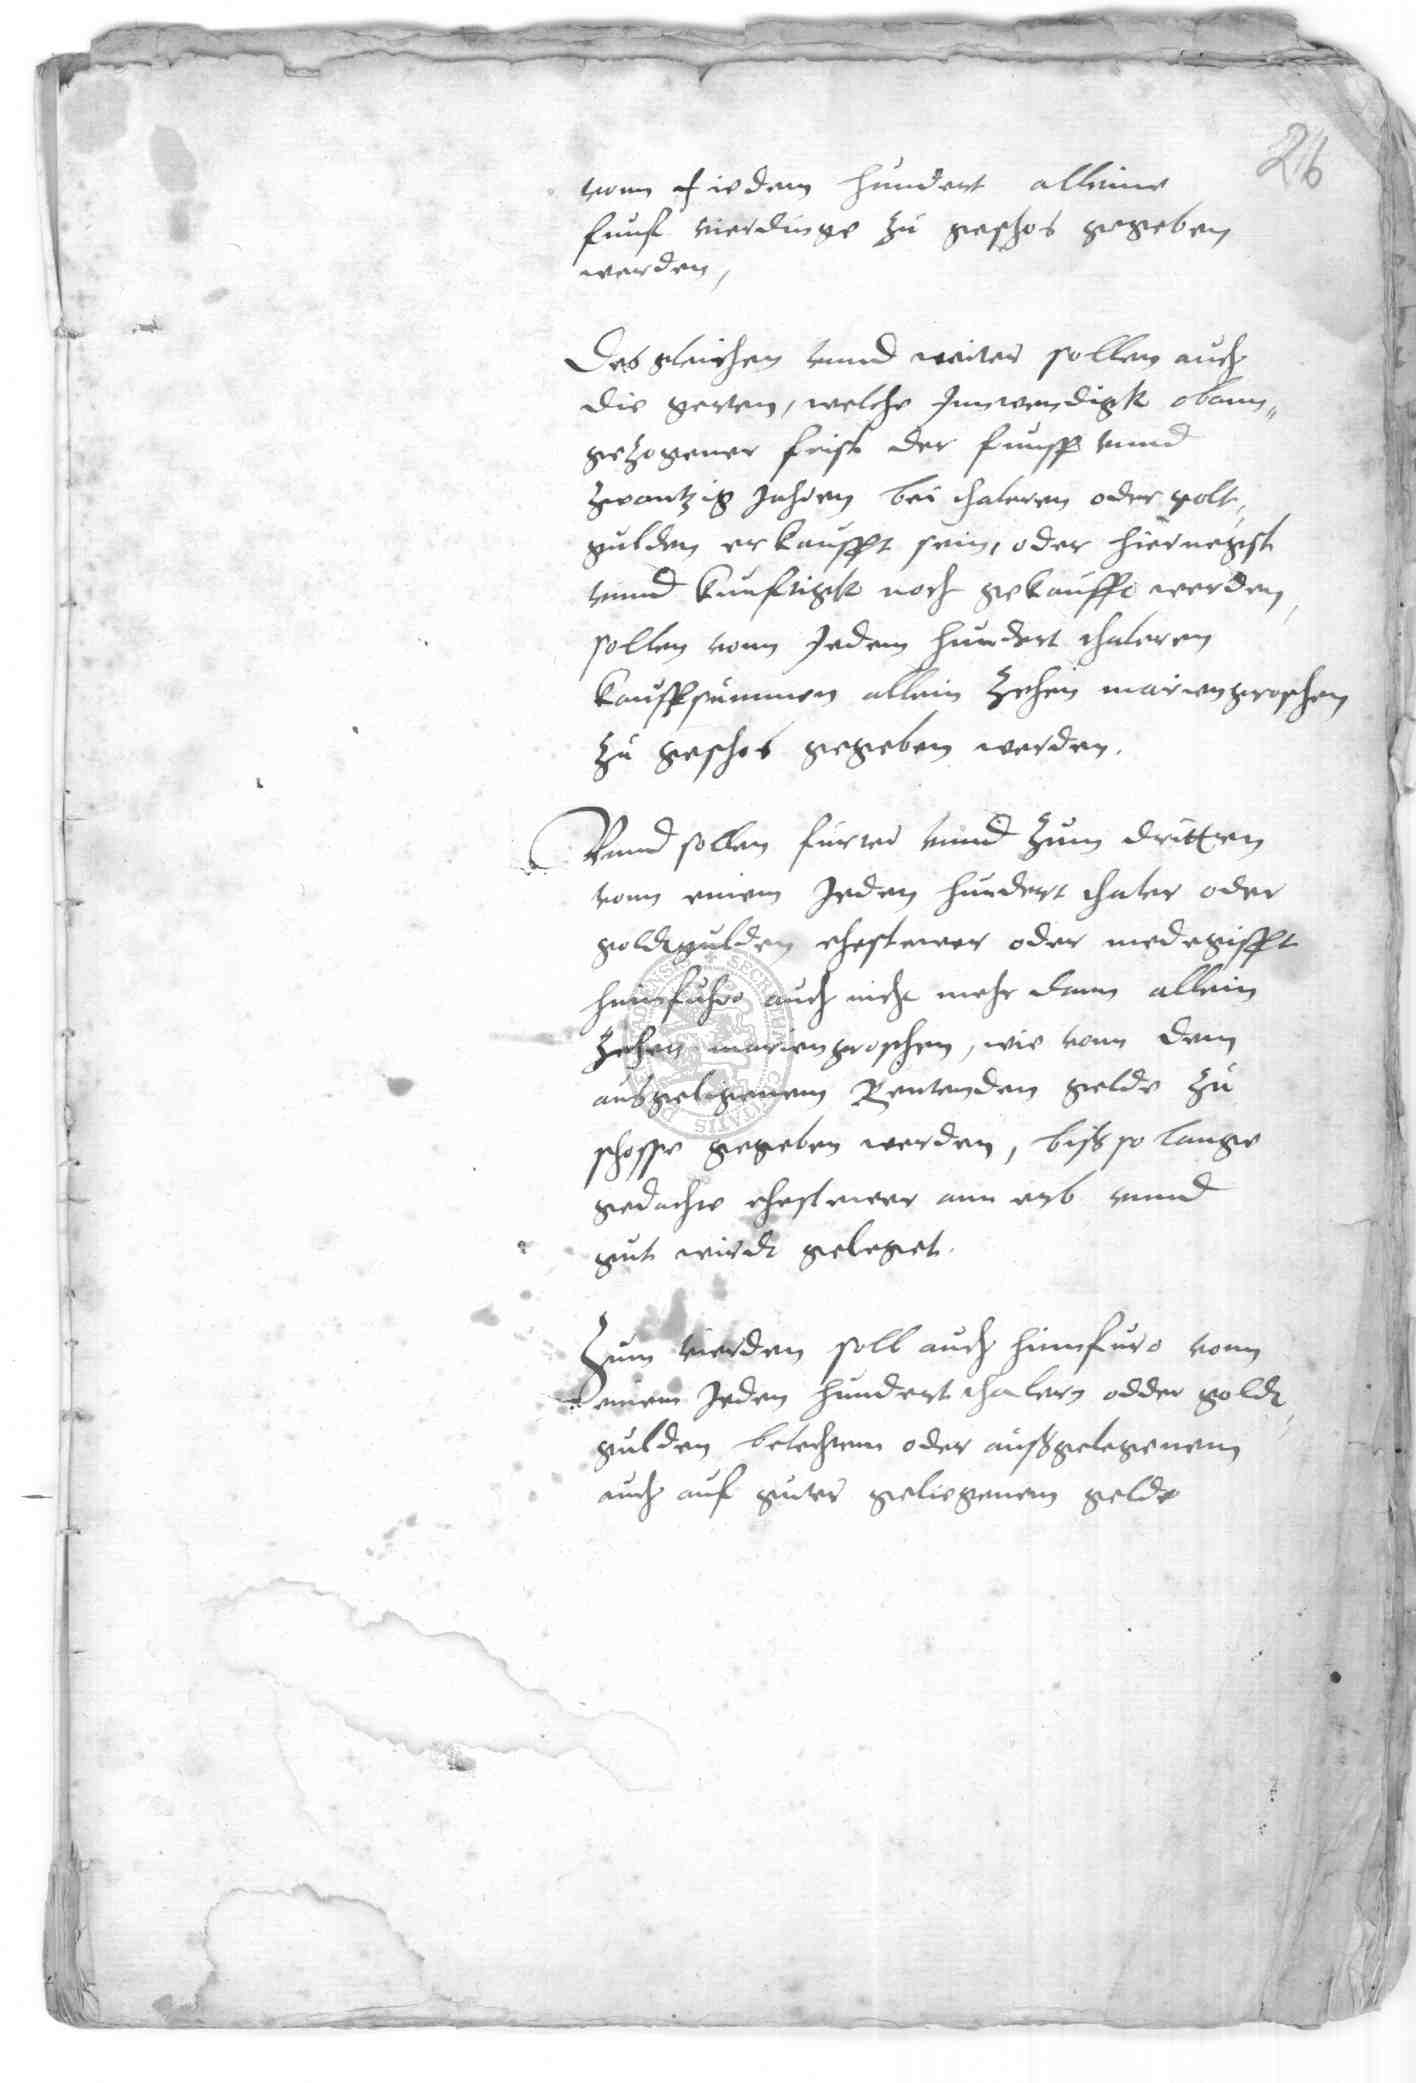 26
vonn iedem hundert alleine
funf vierdinge zu geschos gegeben
werden,
Desgleichen vnnd weiter sollen auch
die gerten, welche Innwendigk obann„
gezogener frist der funff vnnd
zwantzig Jahren bei thaleren oder golt,
gulden erkaufft sein, oder hiernegst
vnnd kunftigk noch gekaufft werden,
sollen vonn Jedem hundert thaleren
kauffsummen allein zehein mariengroschen
zu geschos gegeben werden.
Vnnd sollen furter vnnd zum dritten
vonn einem Jeden hundert thaler oder
goldtgulden ehestewer oder medegifft
hinnfuhro auch nicht mehr dann allein
zehen mariengroschen, wie vonn dem
ausgeligenem Rentenden gelde zu
schosse gegeben werden, biß so lange
gedachte ehestewer ann erb vnnd
gut wirdt geleget.
Zum vierden soll auch hinnfuro vonn
einem Jeden hundert thalern odder goldt,
gulden belechtem oder außgelegenem
auch auf guter geliegenem gelde